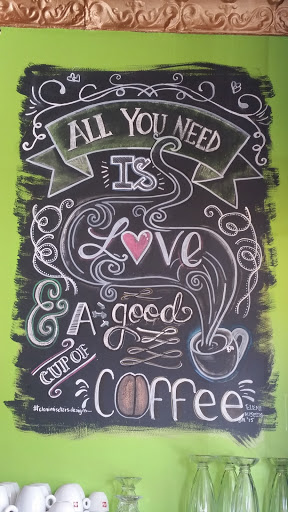 ALL YOU NEED
IS
Love
& A good
CUP OF
Coffee